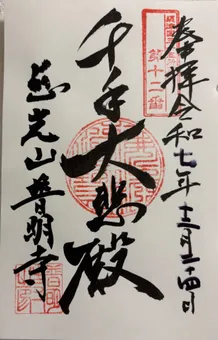 奉拝 令和七年十二月二十四日
第十二番
千手大悲殿
慈光山 普明寺